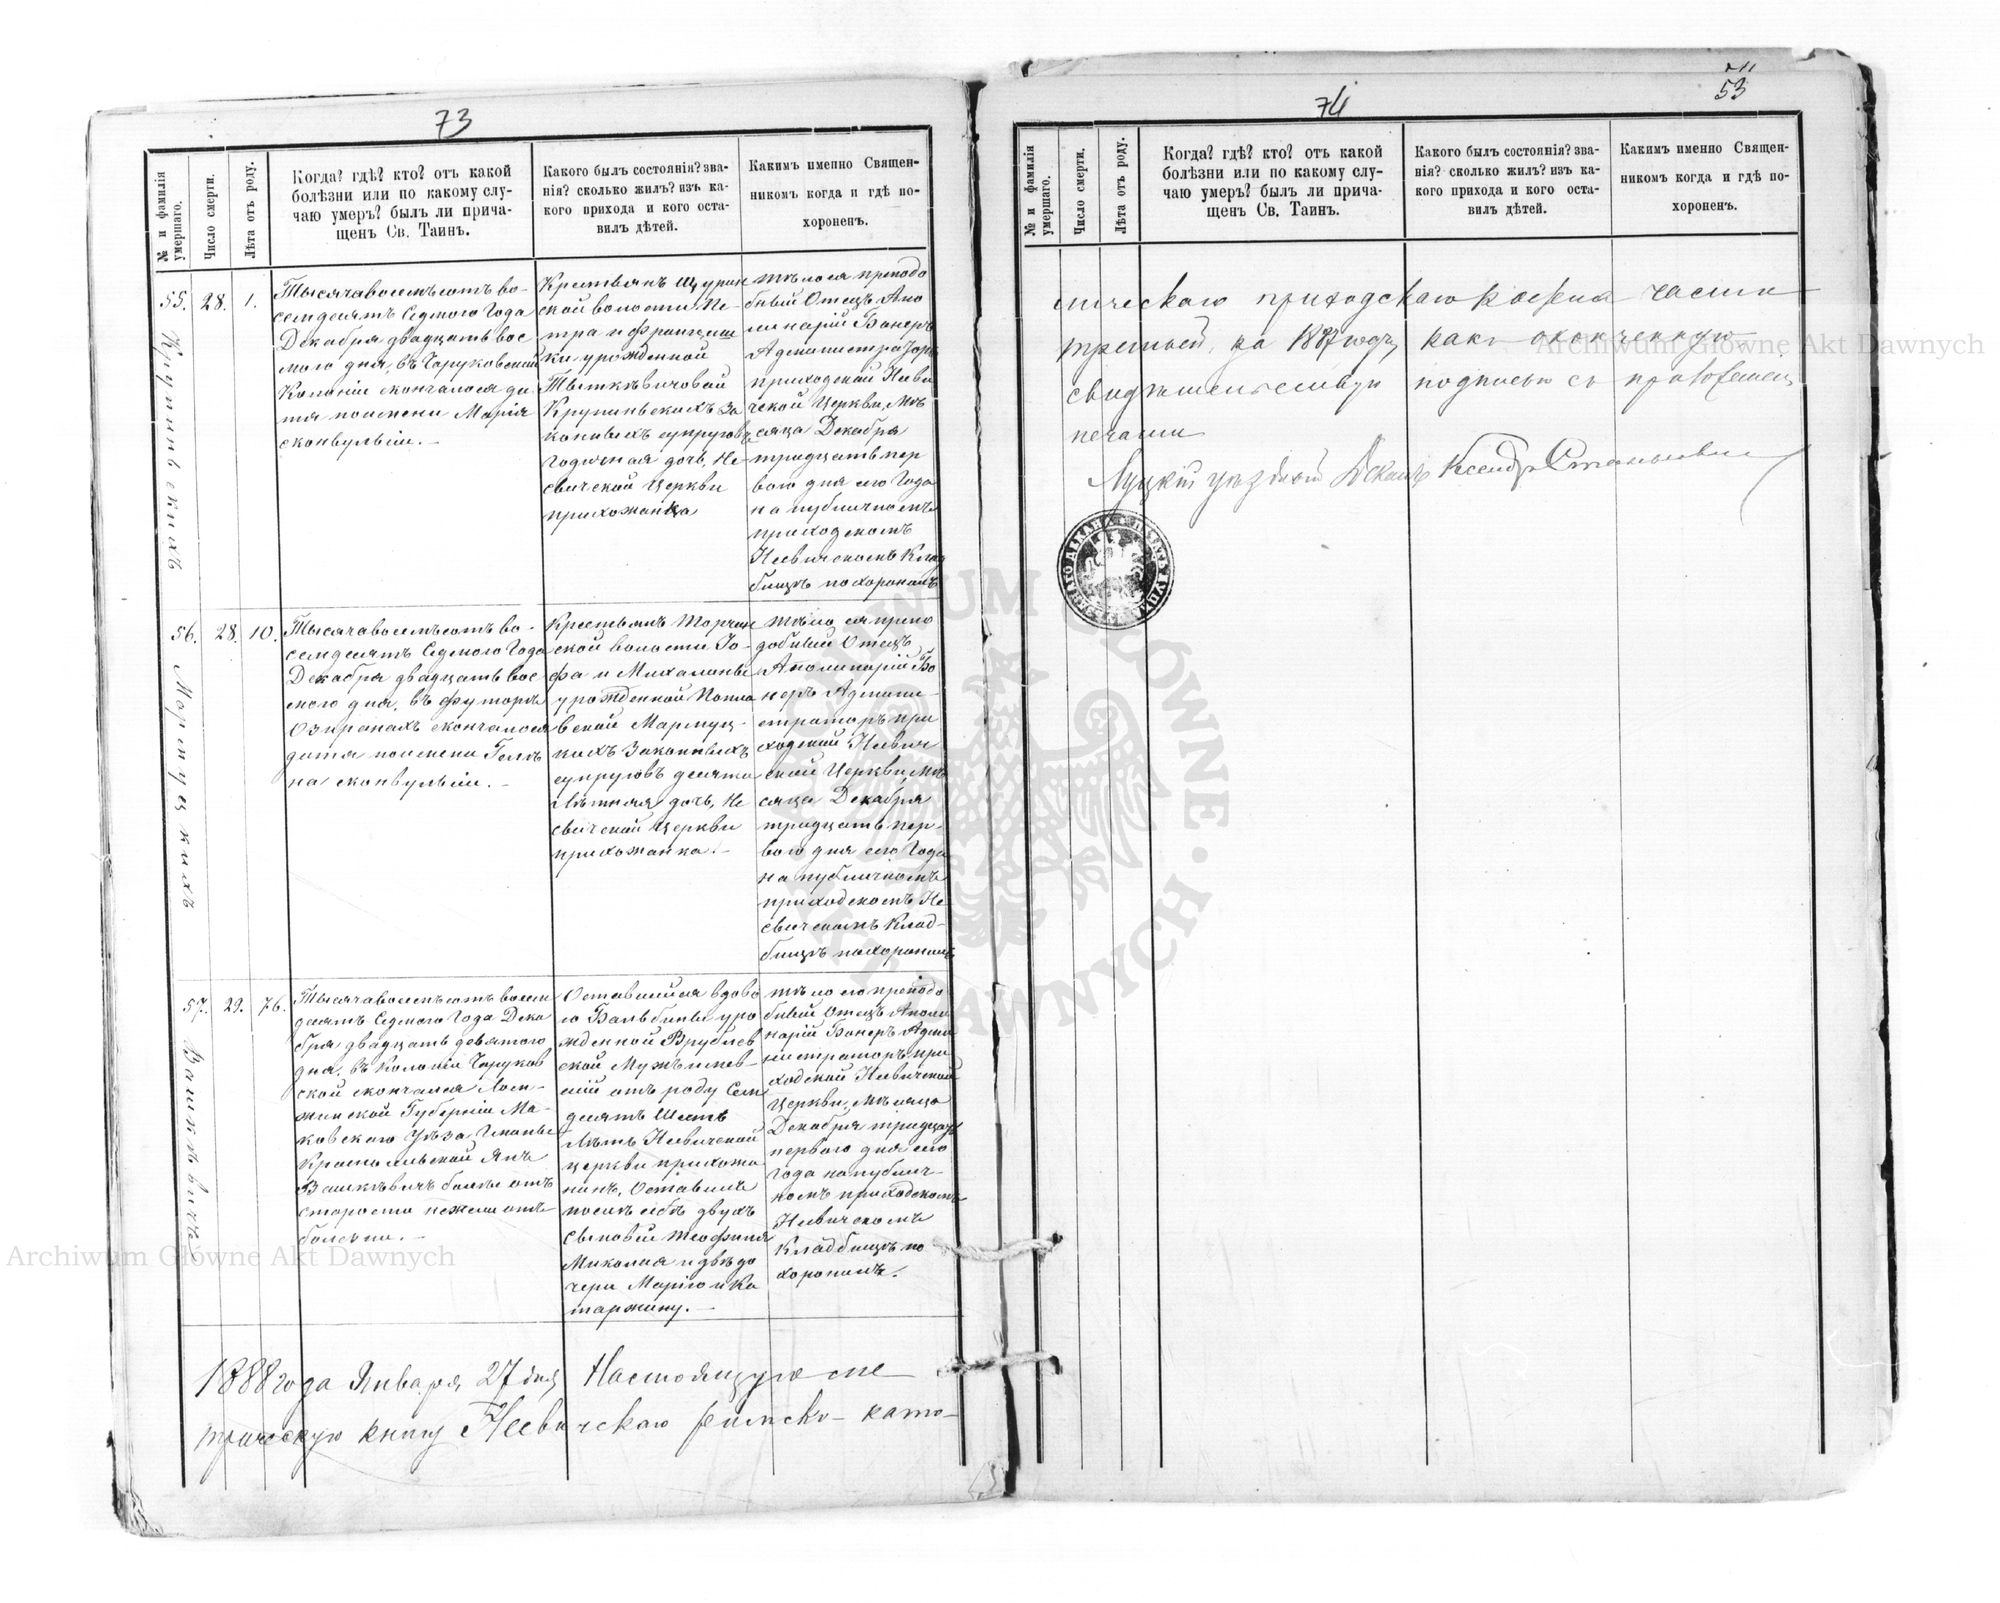 73
№ и фамилія умершаго.
Число смерти.
Лѣта отъ роду.
Когда? гдѣ? кто? отъ какой
болѣзни или по какому слу-
чаю умеръ? былъ ли прича-
щенъ Св. Таинъ.
Какого былъ состоянія? зва-
нія? сколько жилъ? изъ ка-
кого прихода и кого оста-
вилъ дѣтей.
Каким именно Священ-
никомъ когда и гдѣ по-
хороненъ.
55.
28.
1.
Тысяча восемьсотъ во-
семдесятъ Седмого Года
Декабря двадцать вос
мого дня, въ Чаруковской
Колоніи скончалося ди-
тя поимени Марія
сконвульсіи. -
Крестьянъ Щурин
ской волости Пе-
тра и Францыш
ки урожденной
Тышкѣвичовой
Крупиньскихъ за
конныхъ супруговъ
Годичная дочь, Не-
свичской Церкви
прихожанка
тѣло ея преподо
бный Отецъ Апо
линарій Бонеръ
Администраторъ
приходской Несви
чской Церкви, Мѣ
сяца Декабря
тридцать пер
вого дня сего Года
на публичномъ
приходскомъ
Несвичскомъ Клад
бищѣ похоронилъ
56.
28.
10.
Тысяча восемьсотъ во-
семдесятъ Седмого Года
Декабря двадцать вос
мого дня, въ футорѣ
скончалося
дитя поимени Геле
на сконвульсіи. -
Крестьянъ Торчин
ской волости Іо-
фа и Михалины
урожденной Попла
вской Мармуц-
кихъ Законныхъ
супруговъ десяти
лѣтняя дочь, Не
свичской Церкви
прихожанка. -
тѣло ея препо
добный Отецъ
Аполинарій Бо
неръ Админи-
страторъ при
ходской Несвич
ской Церкви, Мѣ
сяца Декабря
тридцать пер-
вого дня сего Года
на публичномъ
приходскомъ Не
свичскомъ Клад-
бищѣ похоронилъ
57.
29.
76.
Тысяча восемьсотъ восем
десятъ Седмого Года Дека
бря двадцать девятого
дня, въ Колоніи Чаруков
ской скончался Лом-
жинской Губерніи Ма-
ковского Уѣзда Гмины
Красносельской Янъ
Вашкѣвичъ болѣе отъ
старости нежели отъ
болезни. -
Оставшійся вдово
ю Бальбины уро
жденной Врублев
ской Мужъ имев-
шій отъ роду Сем
десятъ Шесть
лѣтъ Несвичской
церкви прихожа
нинъ, Оставилъ
послѣ себѣ двухъ
сыновій Теофиля
Миколая и двѣ до
чери Марію и Ка
таржину. -
тѣло его преподо
бный Отецъ Аполи
нарій Бонеръ Адми
нистраторъ при
ходской Несвичской
Церкви, Мѣсяца
Декабря тридцать
первого дня сего
Года на публич-
номъ приходскомъ
Несвичскомъ
Кладбищѣ по-
хоронилъ.
1888 года Января 27 дня Настоящую ме
трическую книгу Несвичскаго римско-като-
74
53
№ и фамилія умершаго.
Число смерти.
Лѣта отъ роду.
Когда? гдѣ? кто? отъ какой
болѣзни или по какому слу-
чаю умеръ? былъ ли прича-
щенъ Св. Таинъ.
Какого былъ состоянія? зва-
нія? сколько жилъ? изъ ка-
кого прихода и кого оста-
вилъ дѣтей.
Каким именно Священ-
никомъ когда и гдѣ по-
хороненъ.
лическаго приходскаго костела части
третьей, за 1887 годъ, какъ оконченную
свидѣтельствую подписью съ приложеніемъ
печати
Луцкій уѣздный Деканъ Ксендзъ
Archiwum Główne Akt Dawnych
Archiwum Główne Akt Dawnych